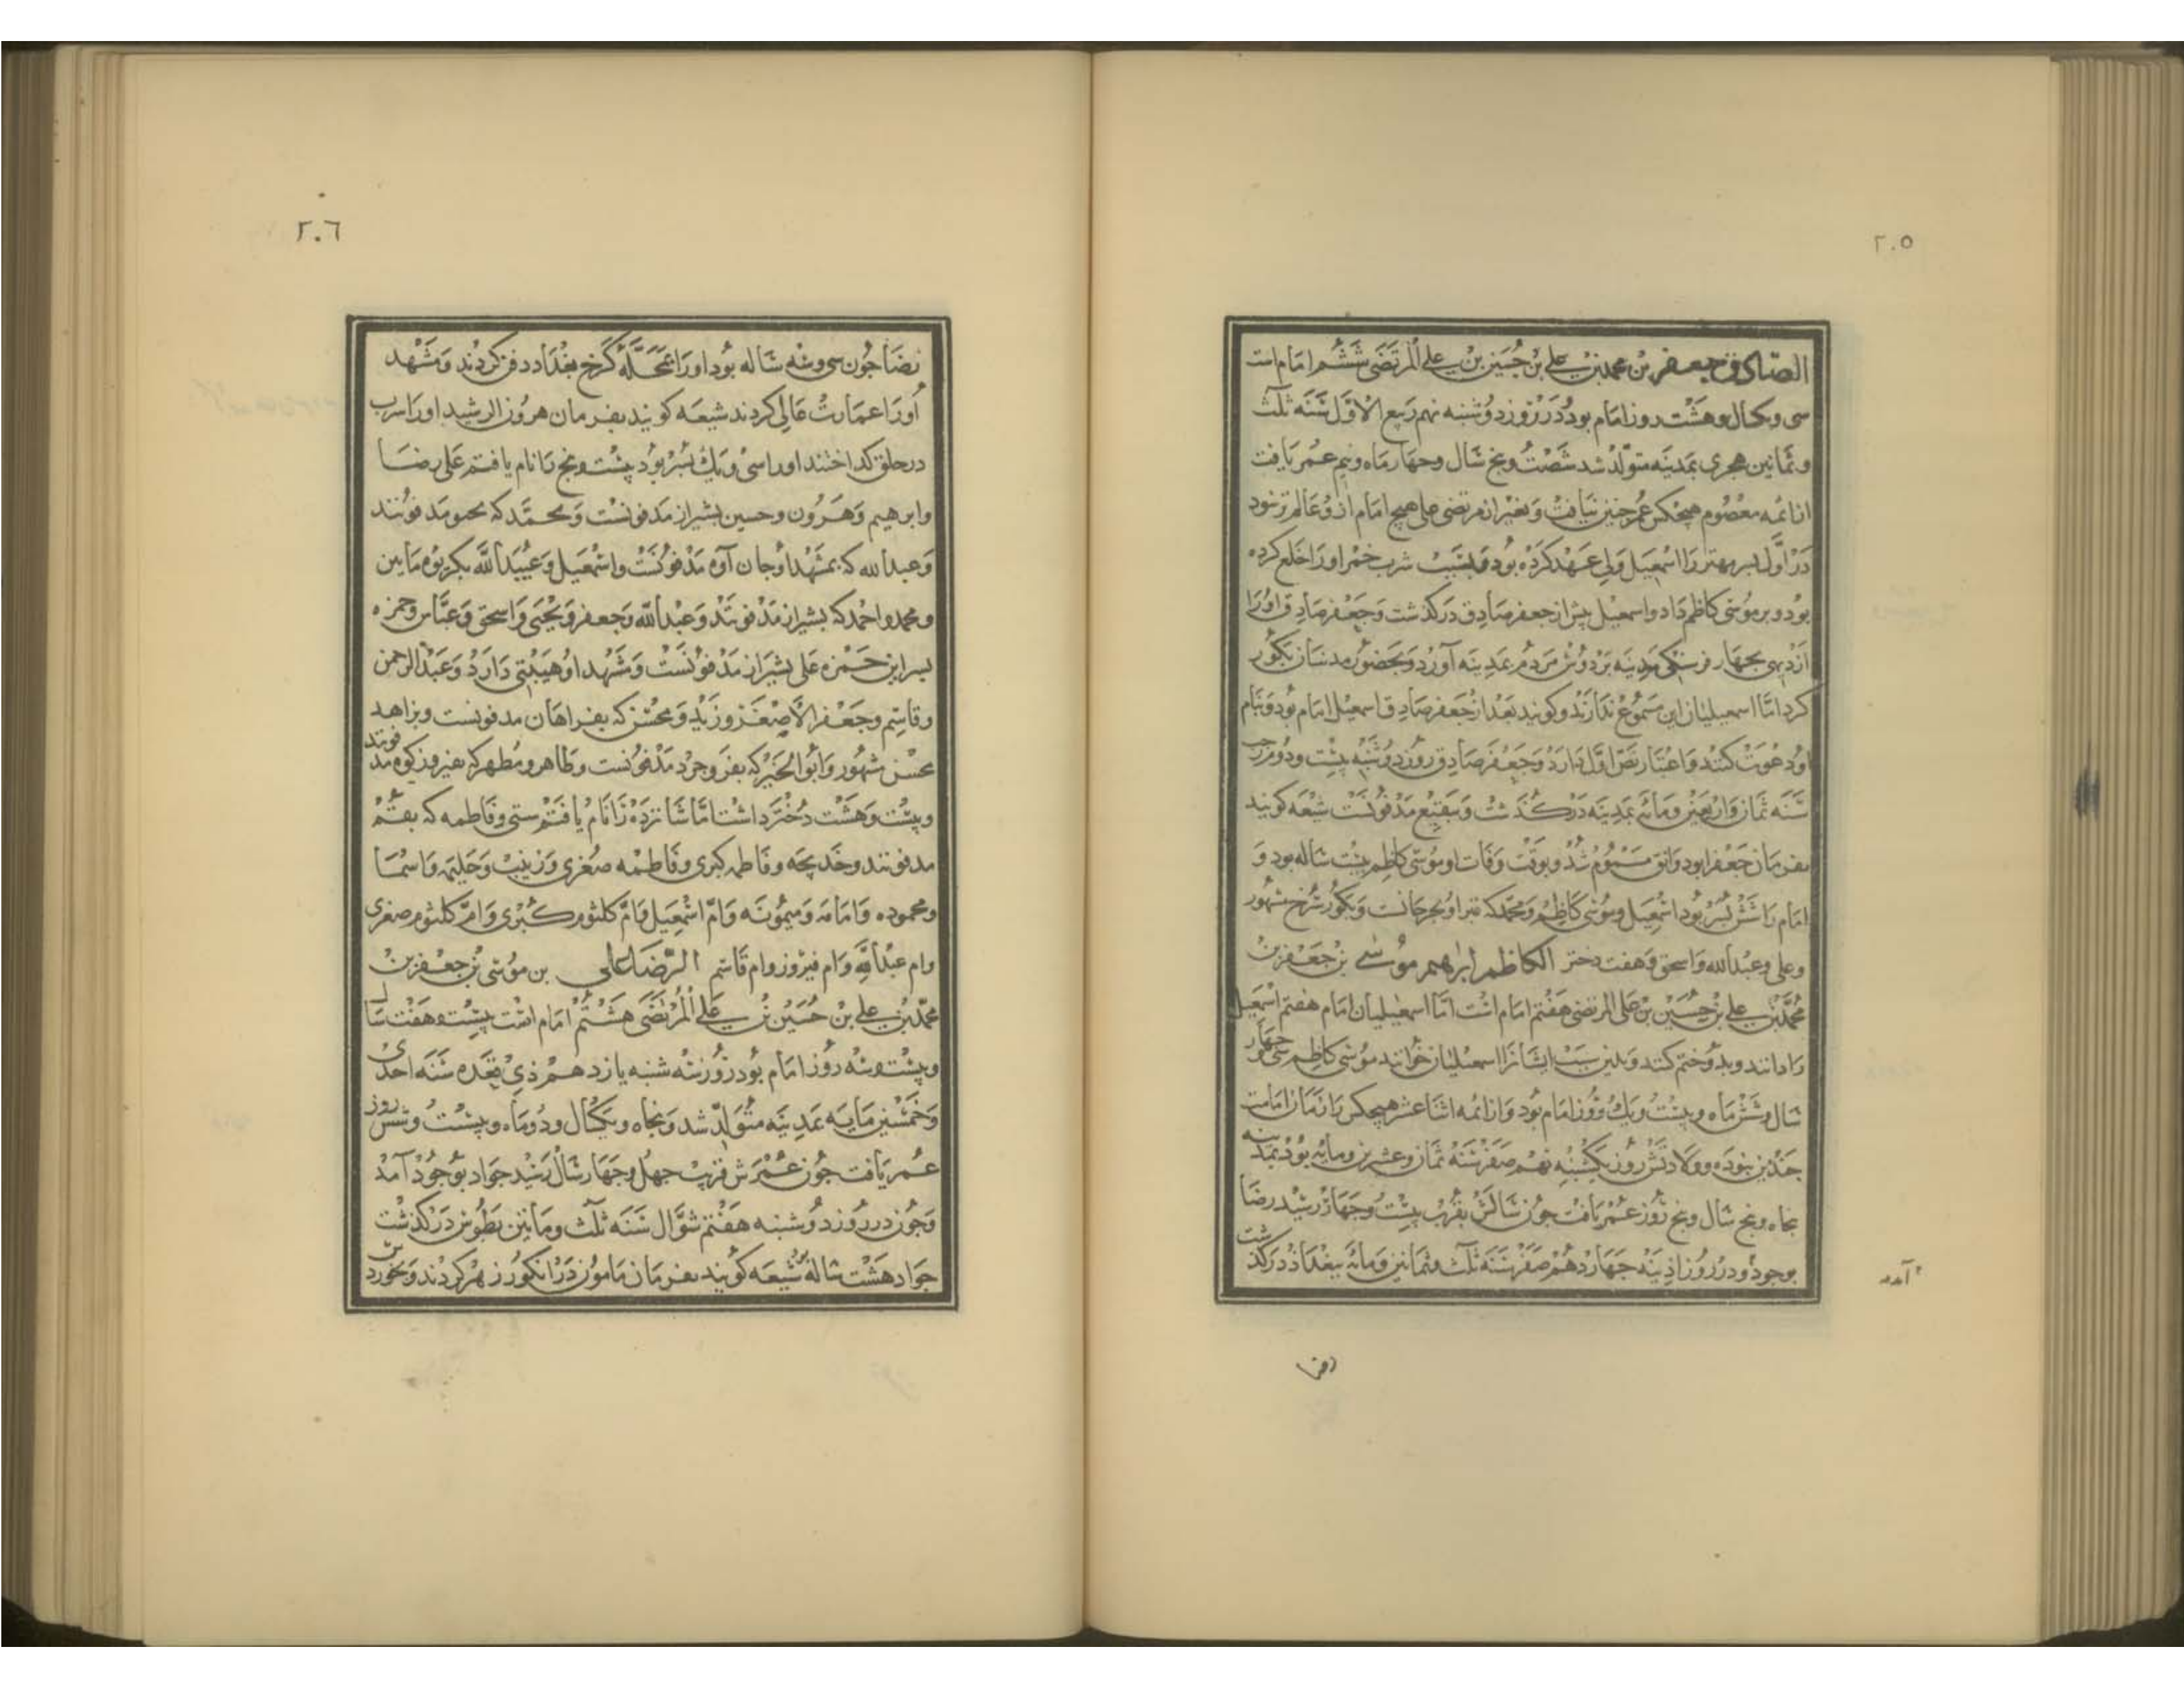 ٢٠٥
الصّادق جعفر بن محمد بن علی بن حُسَین بن علی المرتضی ششم امام است
سی و یکسال و هشت روز امام بود در روز دوشنبه نهم ربیع الاوّل سَنَه ثلث
و ثمانین هجری بمدینه متولّد شد شصت و پنج سال و چهار ماه و نیم عمر یافت
از ائمه معصوم هیچکس عمر چنین نیافت و بغیر از مرتضی علی هیچ امام ازو عالم تر نبود
در اوّل پسر مهتر را اسمعیل ولی عهد کرده بود و بسبب شرب خمر او را خلع کرده
بود و بر موسی کاظم داد و اسمعیل پیش از جعفر صادق درکذشت و جعفر صادق او را
از دیهی بچهار فرسنکی مدینه بر دوش مردم بمدینه آورد و بحضور مدنیان بکور
کرد امّا اسمعیلیان این مسموع ندارند و کویند بعد از جعفر صادق اسمعیل امام بود و بنام
او دعوت کنند و اعتبار نصّ اوّل دارد و جعفر صادق روز دوشنبه بیست و دوم رجب
سَنَه ثمان و اربعین و مائه بمدینه درکذشت و ببقیع مدفونست شیعه کویند
بفرمان جعفر ابو دوانق مسموم شد و بوقت وفات او موسی کاظم بیست ساله بود و
امام را شش پسر بود اسمعیل و موسی کاظم و محمد که قبر او بجرجانست و بکور سرخ مشهور
و علی و عبدالله و اسحق و هفت دختر الکاظم ابراهیم موسی بن جعفر بن
محمّد بن علی بن حُسَین بن علی المرتضی هفتم امام است امّا اسمعیلیان امام هفتم اسمعیل
را دانند و بدو ختم کنند و بدین سبب ایشانرا اسمعیلیان خوانند موسی کاظم سی و چهار
سال و شش ماه و بیست و یک روز امام بود و از ائمه اثنا عشر هیچکس را زمان امامت
چندین نبوده و ولادتش روز یکشنبه نهم صفر سنه ثمان و عشرین و مایه بود بمدینه
پنجاه و پنج سال و پنج روز عمر یافت چون سالش بقرب بیست و چهار رسید رضا
بوجود و در روز آدینه چهاردهم صفر سَنَه ثلث و ثمانین و مائه ببغداد درکذشت
آمد
رضا
٢٠٦
رضا چون سی و سه ساله بود او را بمحلّه کرخ بغداد دفن کردند و مشهد
او را عمارت عالی کردند شیعه کویند بفرمان هرون الرشید او را سرب
در حلق کداختند او را سی و یک پسر بود بیست و پنج را نام یافتم علی رضا
و ابرهیم و هرون و حسین بشیراز مدفونست و محمّد که مدفونند
و عبدالله که بمشهد اوجان آوه مدفونست و اسمعیل و عبیدالله بکربوه مابین
و محمد و احمد که بشیراز مدفونند و عبدالله و جعفر و یحیی و اسحق و عبّاس و حمزه
پسر این حمزه علی بشیراز مدفونست و مشهد او هیبتی دارد و عبدالرحمن
و قاسم و جعفر الاصغر و زید و محسن که بفراهان مدفونست و بزاهد
محسن مشهور و ابوالخیر که بفروجرد مدفونست و طاهر و مطهر که بفیروزکوه مدفونند
و بیست و هشت دختر داشت امّا شانزده را نام یافتم ستی و فاطمه که بقم
مدفونند و خدیجه و فاطمه کبری و فاطمه صغری و زینب و حلیمه و اسما
و محموده و امامه و میمونه و امّ اسمعیل و امّ کلثوم کبری و امّ کلثوم صغری
و ام عبدالله و ام فیروز و ام قاسم الرّضا علی بن موسی بن جعفر بن
محمّد بن علی بن حُسَین بن علی المرتضی هشتم امام است بیست و هفت سال
و بیست و سه روز امام بود روز سه شنبه یازدهم ذی قعده سنه احدی
و خمسین مایه بمدینه متولّد شد و پنجاه و یکسال و دو ماه و بیست و شش روز
عمر یافت چون عمرش قرب چهل و چهار سال رسید جواد بوجود آمد
و چون در روز دوشنبه هفتم شوّال سنه ثلث و مایتین بطوس درکذشت
جواد هشت ساله بود شیعه کویند بفرمان مامون در انکور زهر کردند و بخورد